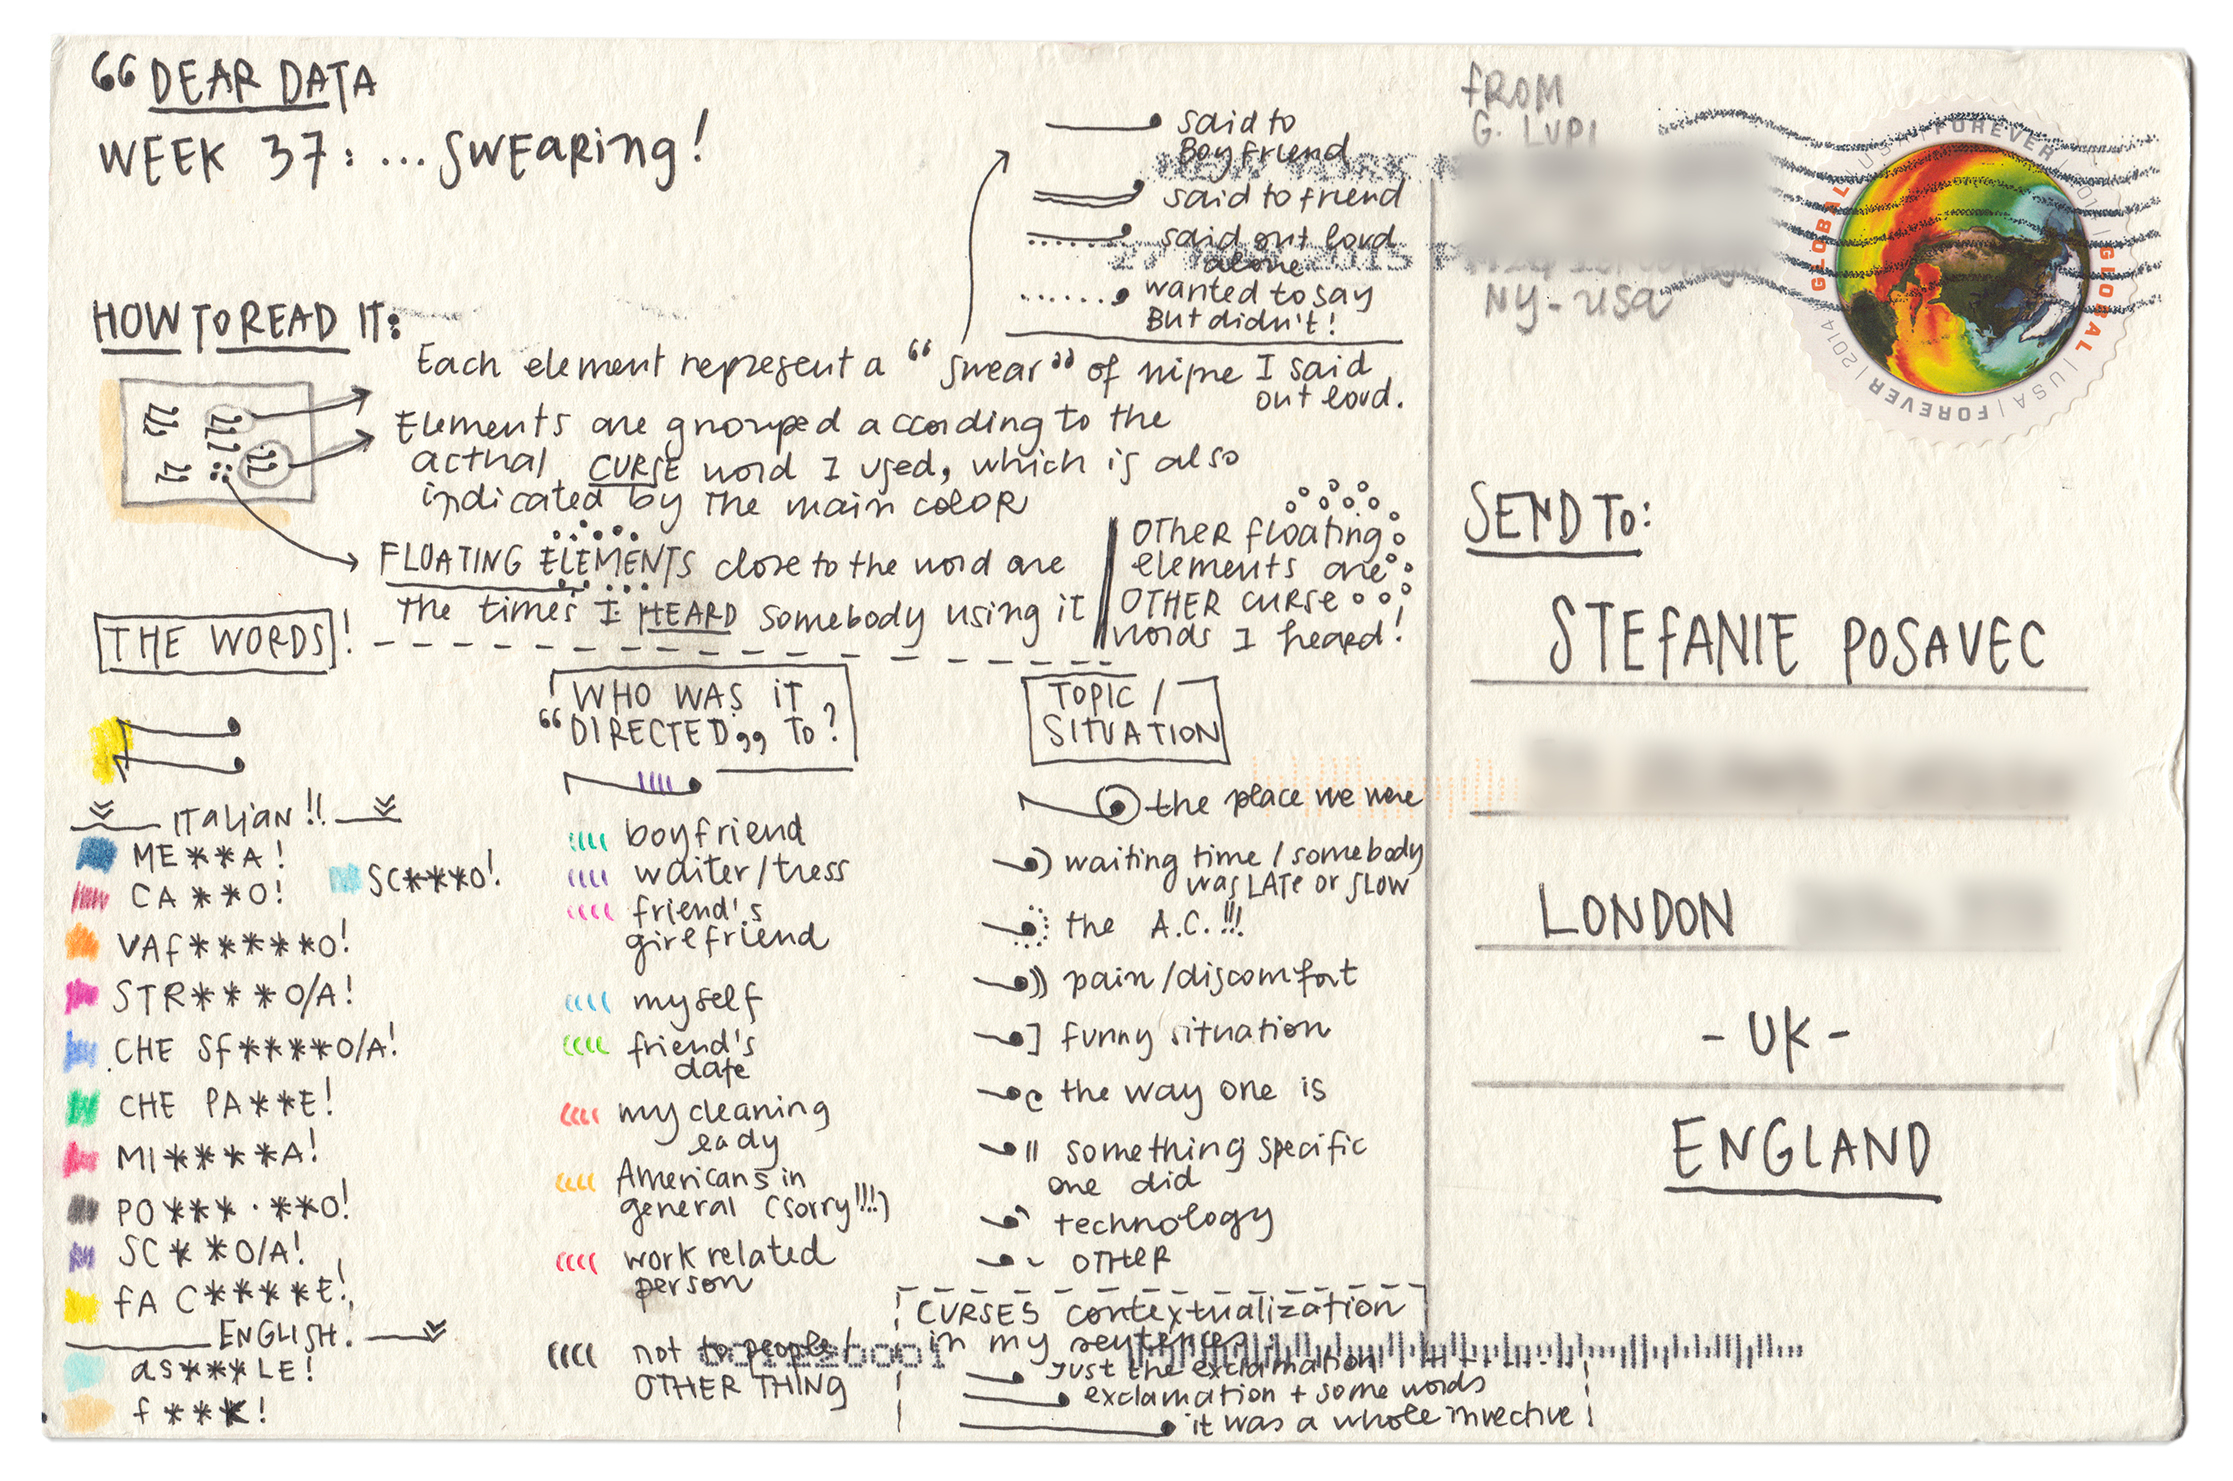 “ DEAR DATA
WEEK 37: ... SWEARING!
said to
Boyfriend
said to friend
said out loud
alone
wanted to say
But didn't!
HOW TO READ IT:
Each element represent a “swear” of mine I said
out loud.
Elements are grouped according to the
actual CURSE word I used, which is also
indicated by the main color
FLOATING ELEMENTS close to the word are
the times I HEARD somebody using it
OTHER floating
elements are
OTHER curse
words I heard!
THE WORDS!
ITALIAN!!
ME**A!
SC***O!
CA**O!
VAf*****O!
STR***O/A!
CHE Sf****O/A!
CHE PA**E!
MI****A!
PO***.**O!
SC**O/A!
fA C****E!
ENGLISH.
as***LE!
f**K!
WHO WAS IT
“DIRECTED„ TO?
boyfriend
waiter/tress
friend's
girlfriend
myself
friend's
date
my cleaning
lady
Americans in
general (sorry!!!)
work related
person
not to people/
OTHER THING
TOPIC/
SITUATION
the place we were
waiting time/somebody
was LATE or SLOW
the A.C.!!!
pain/discomfort
funny situation
the way one is
something specific
one did
technology
OTHER
CURSES contextualization
in my sentences
Just the exclamation
exclamation + some words
it was a whole invective
fROM
G. LUPI
NY-USA
GLOBAL | USA | FOREVER | 2014 | GLOBAL | USA | FOREVER | 2014
SEND TO:
STEfANIE POSAVEC
LONDON
- UK -
ENGLAND